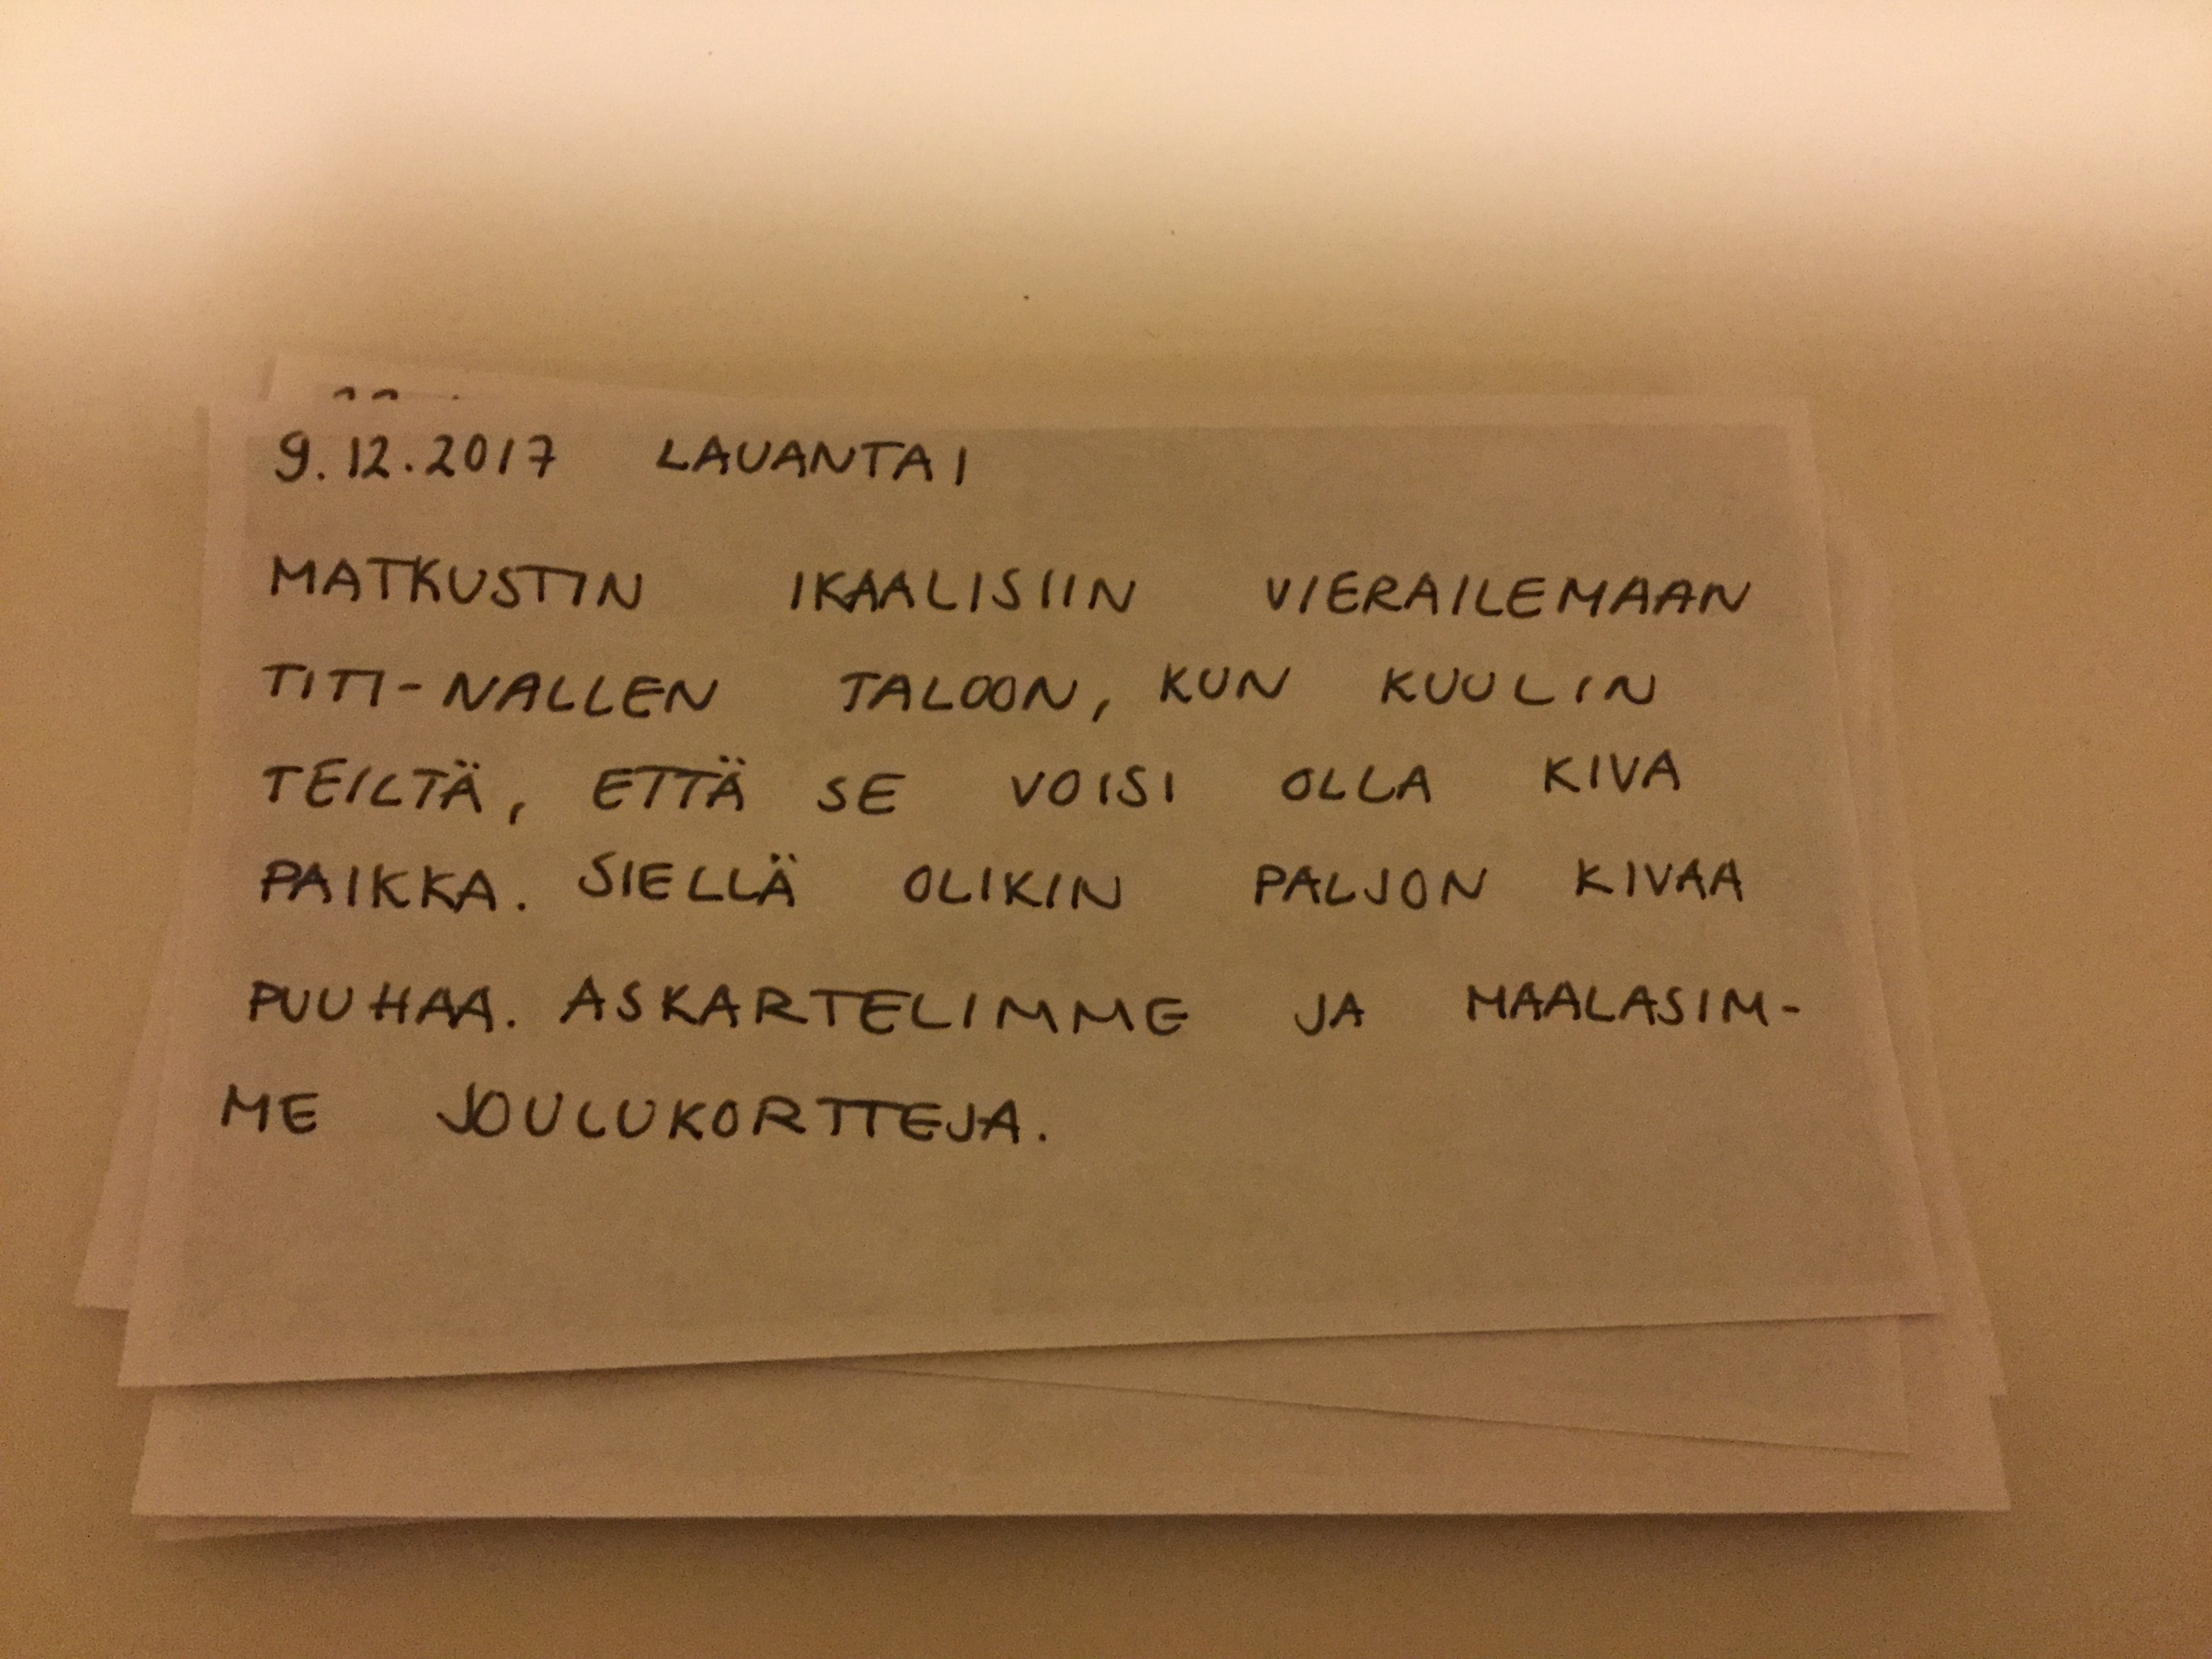 9.12.2017 LAUANTAI
MATKUSTIN IKAALISIIN VIERAILEMAAN
TITI-NALLEN TALOON, KUN KUULIN
TEILTÄ, ETTÄ SE VOISI OLLA KIVA
PAIKKA. SIELLÄ OLIKIN PALJON KIVAA
PUUHAA. ASKARTELIMME JA MAALASIM-
ME JOULUKORTTEJA.